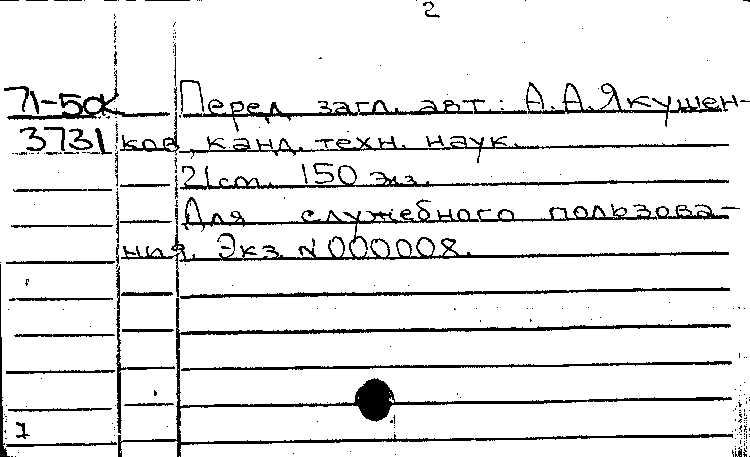 2
71-5dk Перед загл. авт.: А.А.Якушен-
3731 ков, канд. техн. наук.
21cm. 150 экз.
Для служебного пользова-
ния. Экз N 000008.
1